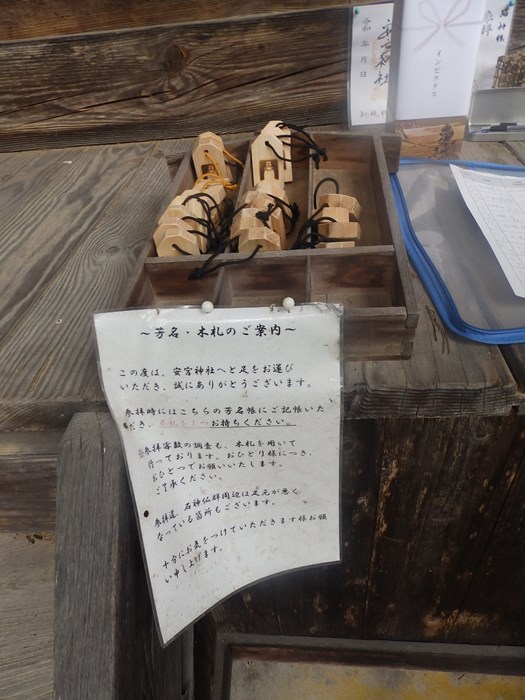 令和 年 月 日
安宮神社
インビクタス
参拝
～芳名・木札のご案内～
この度は、安宮神社へと足をお運び
いただき、誠にありがとうございます。
参拝時にはこちらの芳名帳にご記帳いた
だき、木札を1つお持ちください。
※参拝客数の調査も、木札を用いて
行っております。おひとり様につき、
おひとつでお願いいたします。
ご了承ください。
参拝道、石神仏群周辺は足元が悪く
なっている箇所もございます。
十分にお気をつけていただきます様お願
い申し上げます。